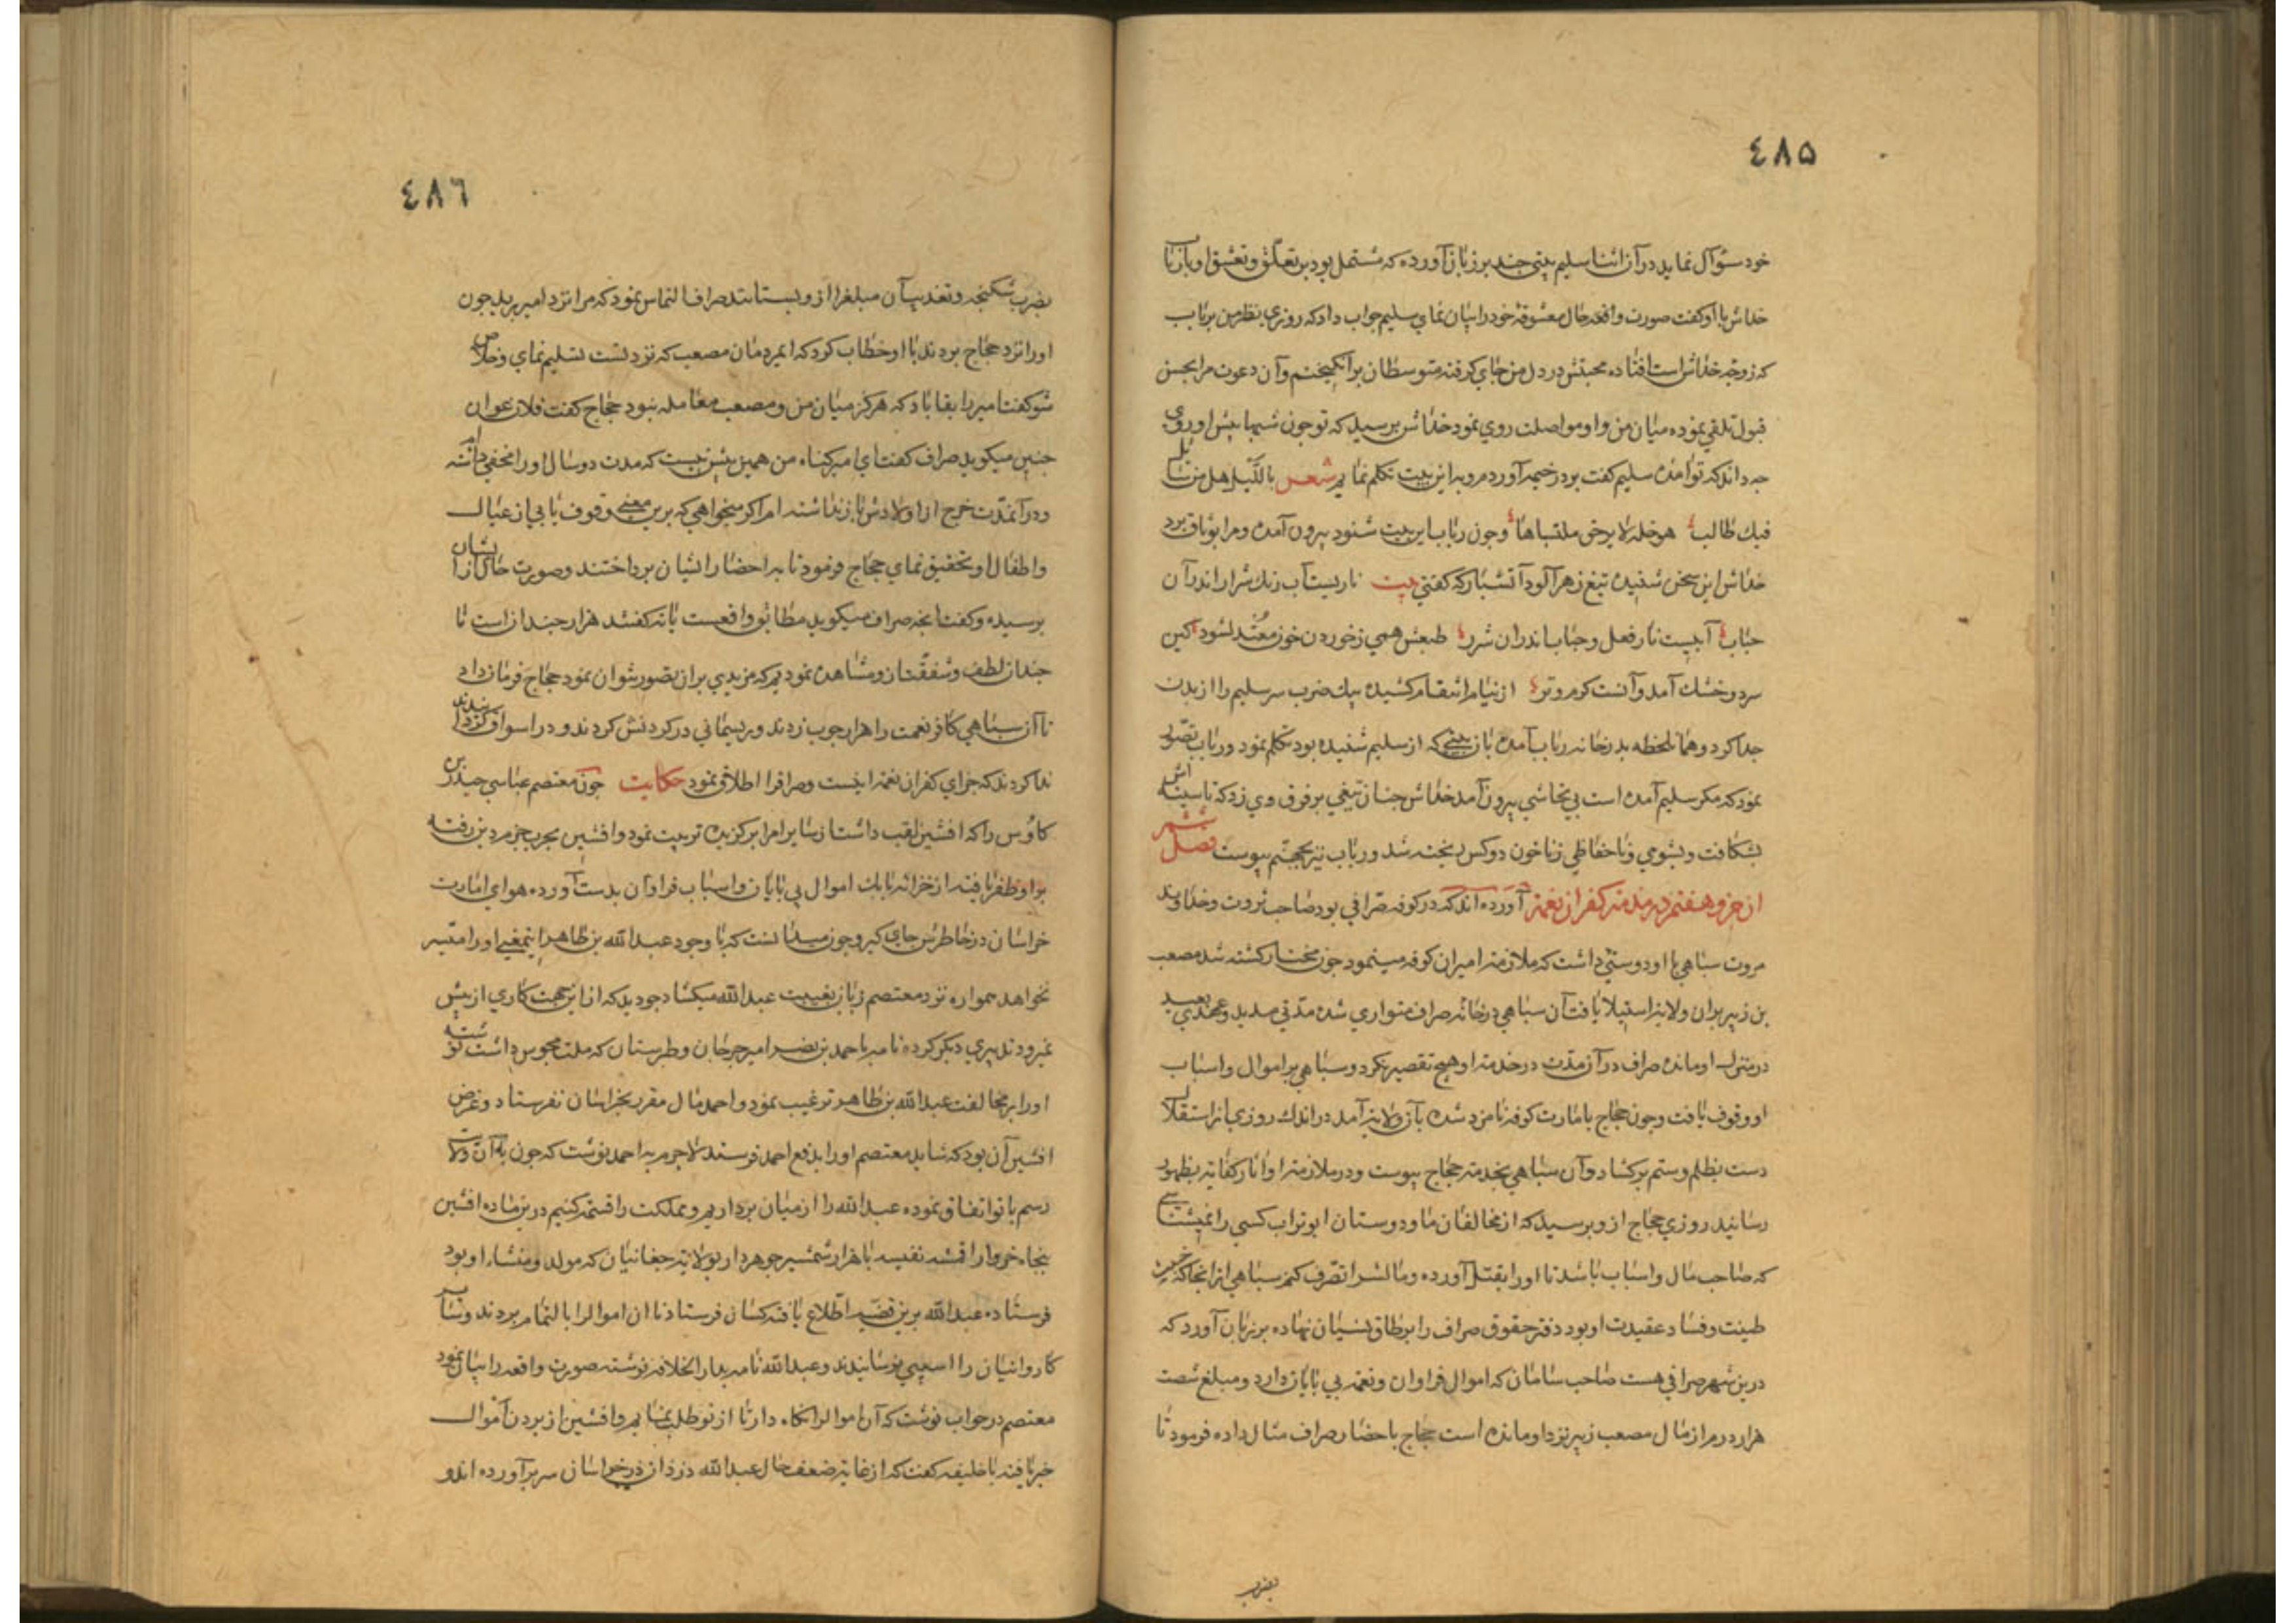 ٤٨٥
خود سؤآل نماید در آن اثنا سلیم بیتی چند بر زبان آورده که مشتمل بود بر تعلّق و تعشق او با رباب
خداش با او کفت صورت واقعه حال معشوقه خود را بیان نمای سلیم جواب داد که روزی نظر من بر رباب
که زوجه خداش است افتاده محبتش در دل من جای کرفته متوسطان برانکیختم و آن دعوت مرا بحسن
قبول تلقی نموده میان من و او مواصلت روی نمود خداش پرسید که تو چون شبها پیش او روی
چه داند که تو آمدۀ سلیم کفت بود رخیمه آورد مرو به این بیت تکلم نمایم شعر باللیل هل من
فیك طالب هو خله لا یرخی ملتباها و چون رباب این بیت شنود بیرون آمده و مرا بوثاق برد
خداش این سخن شنیده تیغ زهر آلود آتشبار که کفتی بیت نار یست آب رنك شرار اندر آن
حباب آبیست نار فعل و حباب اندران شرر طبعش همی ز خوردن خون معتدل شود کین
سرد و خشك آمد و آنست کرم و تر از نیام انتقام کشیده بیك ضرب سر سلیم را از بدن
جدا کرد و همان لحظه بدر خانه رباب آمده باز بیتی که از سلیم شنیده بود تکلم نمود و رباب تصوّر
نمود که مکر سلیم آمده است بی تحاشی بیرون آمد خداش چنان تیغی بر فرق وی زد که تا سینه اش
بشکافت و بشومی و ناحفاظی زنا خون دو کس ریخته شد و رباب نیز بجهنّم پیوست فصل ششم
از جزو هفتم در مذمت کفران نعمت آورده اند که در کوفه صرّافی بود صاحب ثروت و خداوند
مروت سپاهی با او دوستی داشت که ملازمت امیران کوفه مینمود چون مختار کشته شد مصعب
بن زبیر بران ولایت استیلا یافت آن سپاهی در خانه صراف متواری شده مدّتی مدید و عهدی بعید
در منزل او مانده صراف در آن مدّت در خدمت او هیچ تقصیر نکرد و سپاهی بر اموال و اسباب
او وقوف یافت و چون حجاج بامارت کوفه نامزد شده بآن ولایت آمد در اندك روزی از استقلال
دست بظلم و ستم برکشاد و آن سپاهی بخدمت حجاج پیوست و در ملازمت او آثار کفایت بظهور
رسانید روزی حجاج از و پرسید که از مخالفان ما و دوستان ابو تراب کسی را نمیشناسی
که صاحب مال و اسباب باشد تا او را بقتل آورده و مالش را تصّرف کنم سپاهی از آنجا که خبث
طینت و فساد عقیدت او بود دفتر حقوق صراف را بر طاق نسیان نهاده بر زبان آورد که
درین شهر صرافی هست صاحب سامان که اموال فراوان و نعمت بی پایان دارد و مبلغ شصت
هزار درم از مال مصعب زبیر نزد او مانده است حجاج باحضار صراف مثال داده فرمود تا
بضرب
٤٨٦
بضرب شکنجه و تعذیب آن مبلغ را از و بستانند صراف التماس نمود که مرا نزد امیر برید چون
او را نزد حجاج بردند با او خطاب کرد که ایمرد مان مصعب که نزد تست تسلیم نمای و خلاص
شو کفت امیر را بقا باد که هرکز میان من و مصعب معامله نبود حجاج کفت فلان عوان
چنین میکوید صراف کفت ای امیر کناه من همین بیش نیست که مدت دو سال او را مخفی داشته ام
و در آنمدّت خرج از اولادش باز نداشته ام اکر میخواهی که برین معنی وقوف یابی از عیال
و اطفال او تحقیق نمای حجاج فرمود تا به احضار ایشان پرداختند و صورت حال از ایشان
پرسیده و کفت آنچه صراف میکوید مطابق واقعست یا نه کفتند هزار چندان است تا
چندان لطف و شفقت ازو مشاهده نمودیم که مزیدی بران تصور نتوان نمود حجاج فرمان داد
تا آن سپاهی کافر نعمت را هزار چوب زدند و ریسمانی در کردنش کردند و در اسواق کردانیدند
ندا کردند که جزای کفران نعمت اینست و صراف را اطلاق نمود حکایت چون معتصم عباسی حیدر بن
کاؤس را که افشین لقب داشت از سایر امرا برکزیده تربیت نمود و افشین بحرب خرمدین رفته
بر او ظفر یافته از خزائن بابك اموال بی پایان و اسباب فراوان بدست آورده هوای امارت
خراسان در خاطرش جای کیر و چون میدانست که با وجود عبد الله بن طاهر اینمعنی او را متیسر
نخواهد همواره نزد معتصم زبان بغیبت عبد الله میکشاد چو دید که از این جهت کاری از پیش
نمیرود تدبیری دیکر کرده نامه باحمد بن نضر امیر جرجان و طبرستان که ملت مجوس داشت نوشته
او را بر مخالفت عبد الله بن طاهر ترغیب نمود و احمد مال مقرر بخراسان نفرستاد و غرض
افشین آن بود که شاید معتصم او را بدفع احمد فرستد لا جرم به احمد نوشت که چون به آن ولایت
رسم با تو اتفاق نموده عبد الله را از میان برداریم و مملکت را قسمت کنیم در ین ماده افشین
پنجاه خروار اقمشه نفیسه با هزار شمشیر جوهر دار بولایت چغانیان که مولد و منشاء او بود
فرستاده عبد الله برین قضیه اطّلاع یافته کسان فرستاد تا ان اموال را بالتمام بردند و
کاروانیان را آسیبی نرسانیدند و عبد الله نامه بدار الخلافه نوشته صورت واقعه را بیان نمود
معتصم در جواب نوشت که آن اموال را نکاه دار تا از تو طلب نمایم و افشین از بردن آموال
خبر یافته با خلیفه کفت که از غایت ضعف حال عبد الله دزدان در خراسان سر برآورده اند و